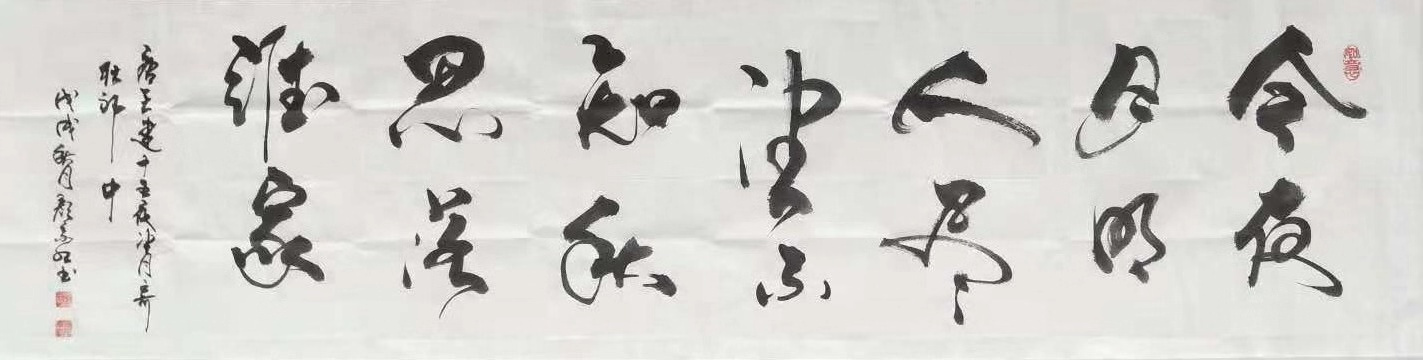 今夜
月明
人尽
望不
知秋
思落
谁家
唐王建十五夜望月寄
杜郎中
戊戌秋月书